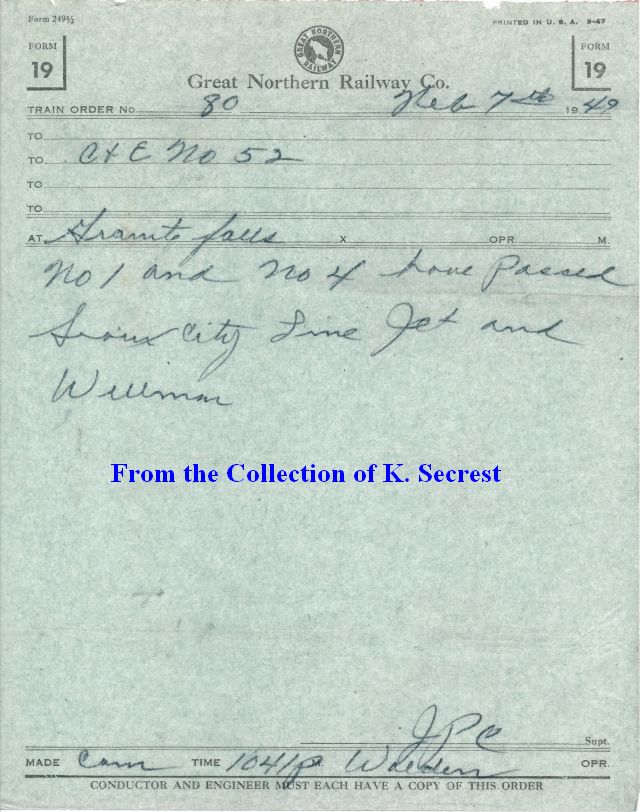 Form 249½
PRINTED IN U. S. A. 9-47
FORM 19
GREAT NORTHERN RAILWAY
FORM 19
Great Northern Railway Co.
TRAIN ORDER No. 80 Feb 7th 1949
TO
TO C & E No 52
TO
TO
AT Granite falls X OPR. M.
No 1 and No 4 have Passed
Sioux City Line Jct and
Willmar
From the Collection of K. Secrest
JPC Supt.
MADE Com TIME 1041p Walden OPR.
CONDUCTOR AND ENGINEER MUST EACH HAVE A COPY OF THIS ORDER